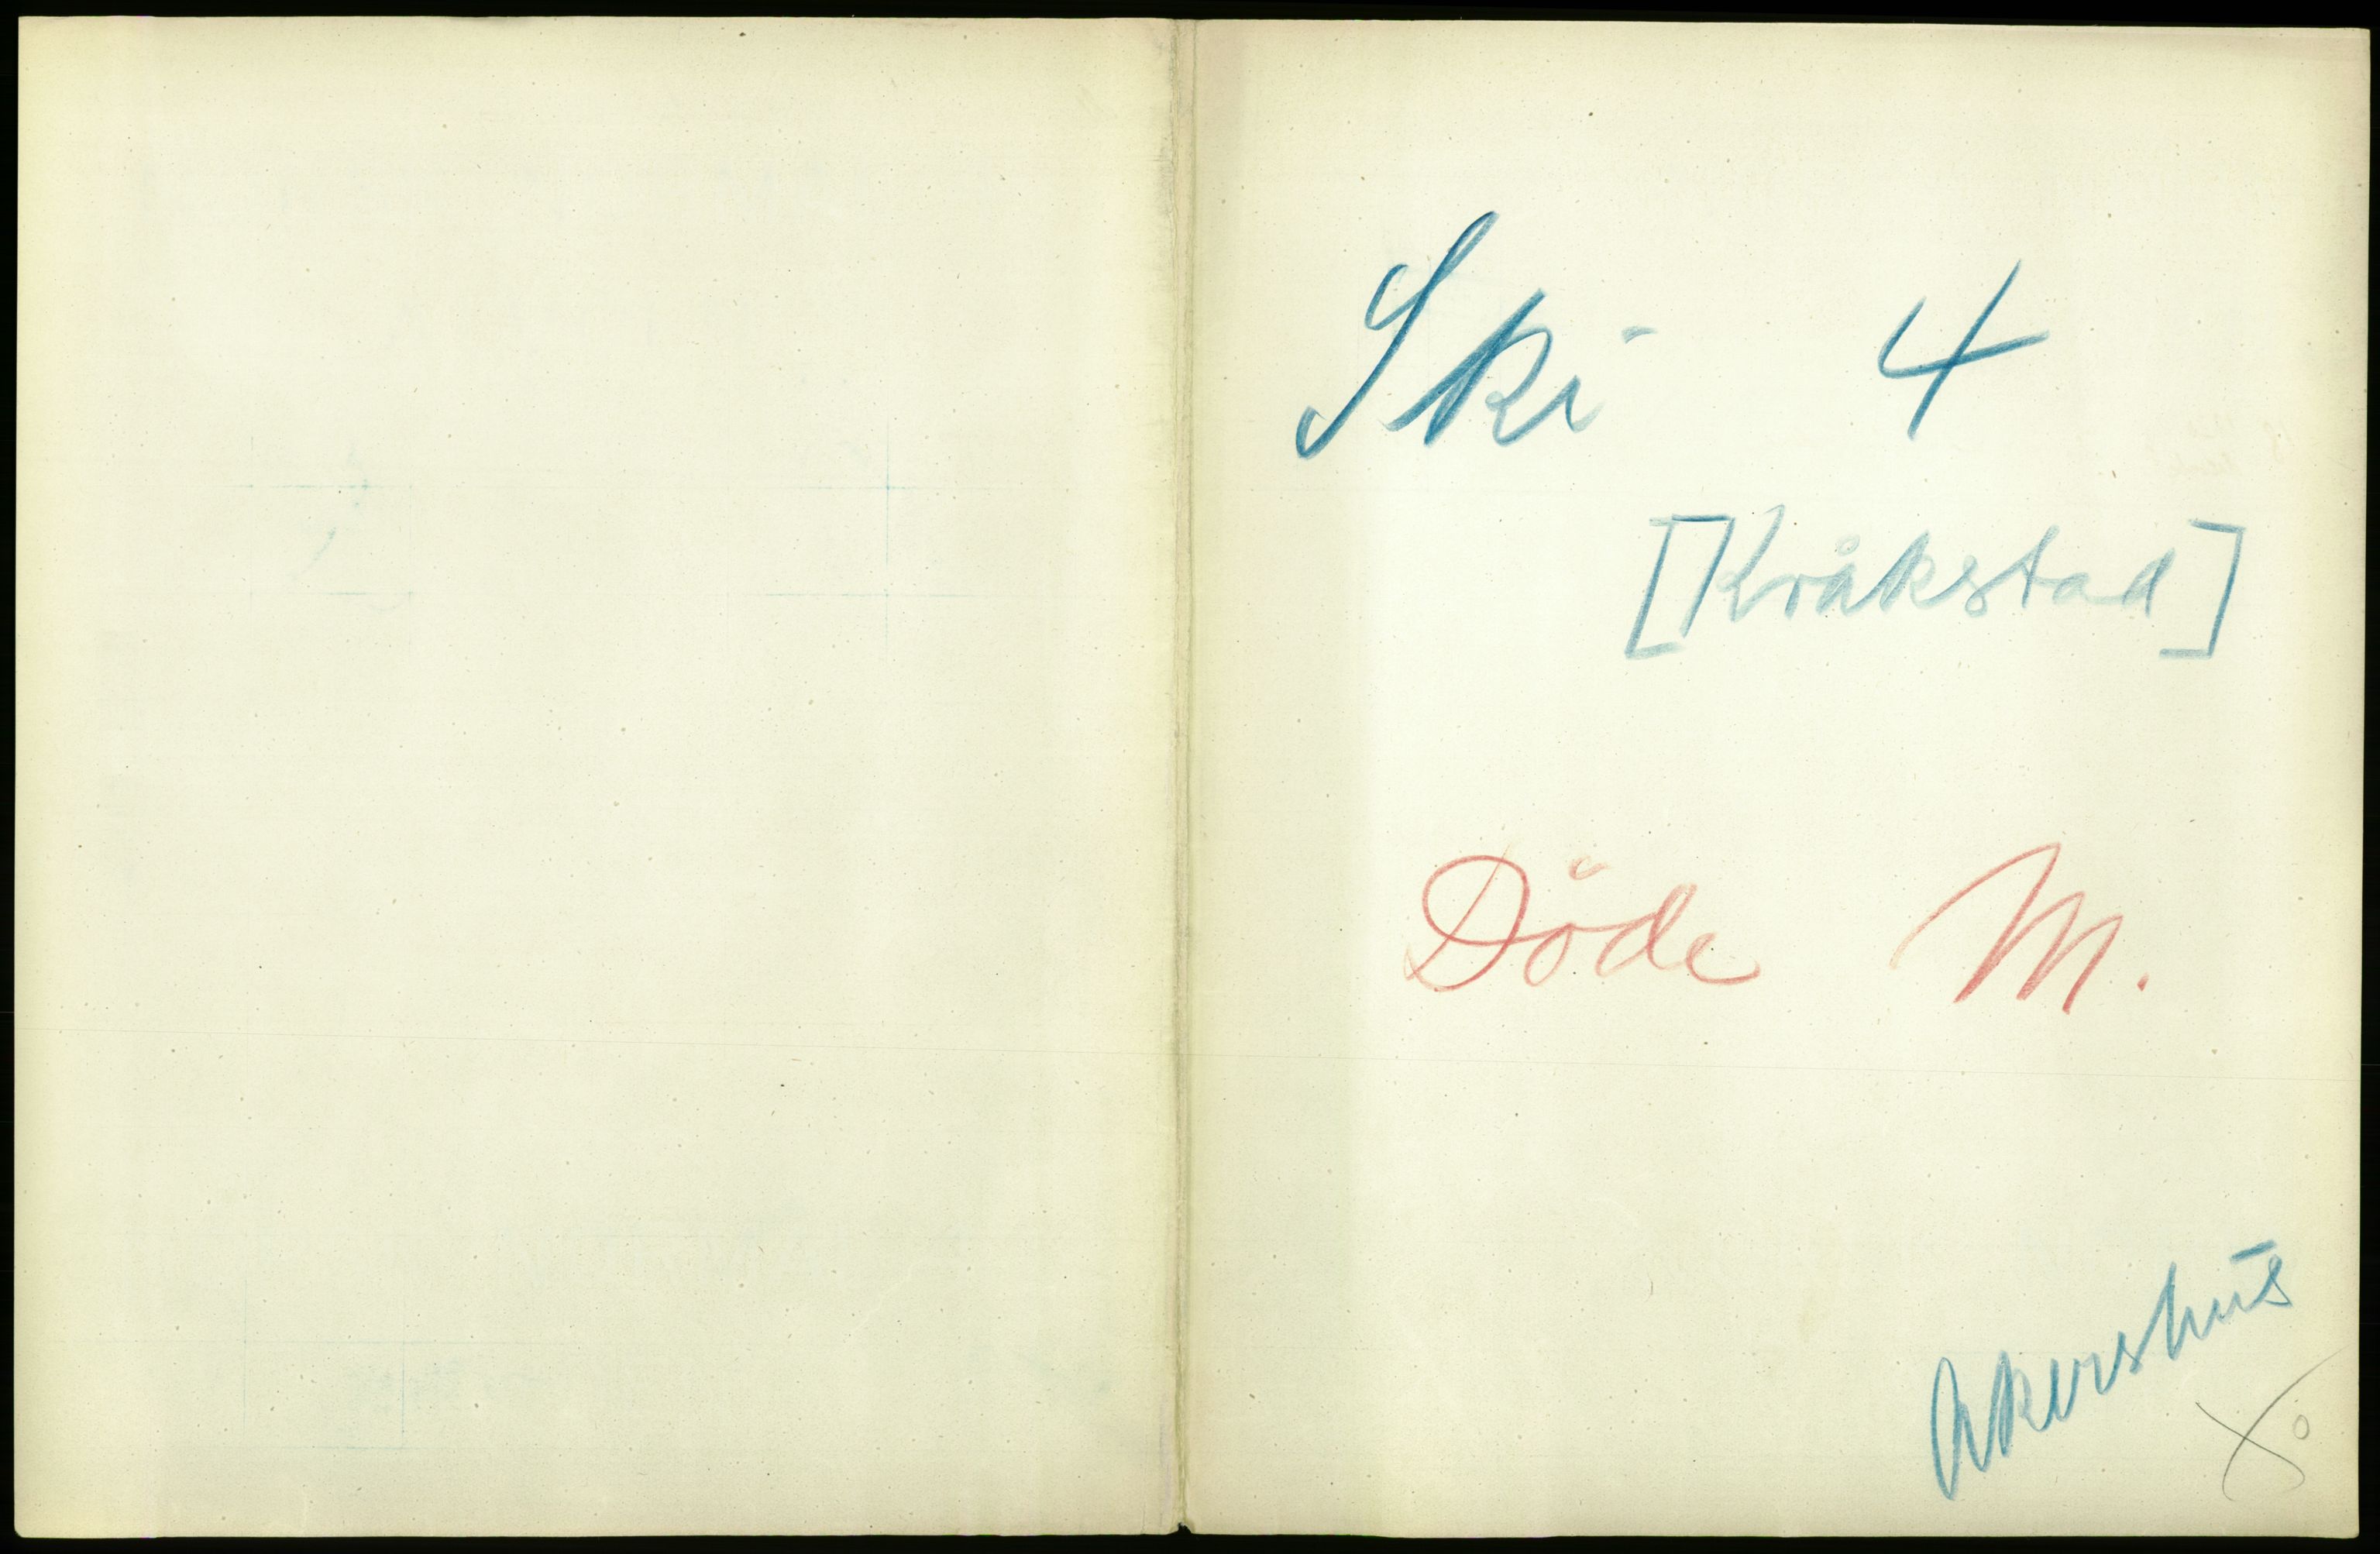 Ski 4
[Kråkstad]
Döde M.
Akershus